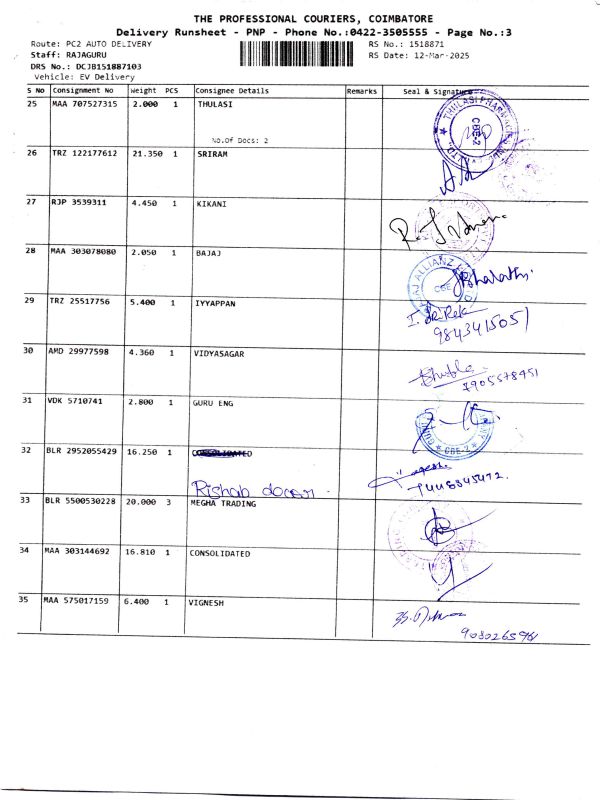 THE PROFESSIONAL COURIERS, COIMBATORE
Delivery Runsheet - PNP - Phone No.:0422-3505555 - Page No.:3
Route: PC2 AUTO DELIVERY RS No.: 1518871
Staff: RAJAGURU RS Date: 12-Mar-2025
DRS No.: DCJB151887103
Vehicle: EV Delivery
S No Consignment No Weight PCS Consignee Details Remarks Seal & Signature
25 MAA 707527315 2.000 1 THULASI
No.Of Docs: 2
THULASI PHARMAC
CBE-2
26 TRZ 122177612 21.350 1 SRIRAM
27 RJP 3539311 4.450 1 KIKANI
28 MAA 303078080 2.050 1 BAJAJ
BAJAJ ALLIANZ
CBE
29 TRZ 25517756 5.400 1 IYYAPPAN
9843415051
30 AMD 29977598 4.360 1 VIDYASAGAR
7905578451
31 VDK 5710741 2.800 1 GURU ENG
CBE-2
32 BLR 2952055429 16.250 1 CONSOLIDATED
Rishab
33 BLR 5500530228 20.000 3 MEGHA TRADING
34 MAA 303144692 16.810 1 CONSOLIDATED
35 MAA 575017159 6.400 1 VIGNESH